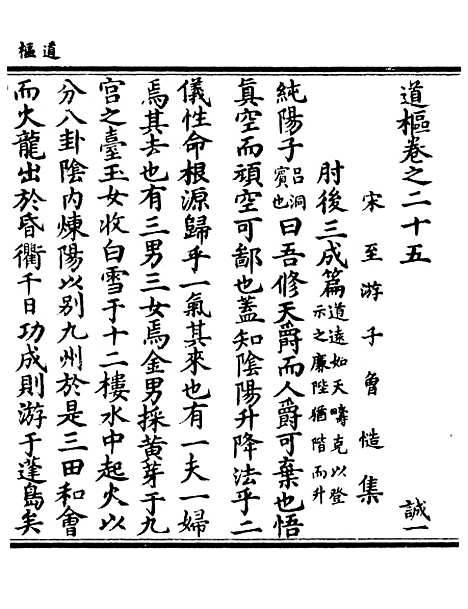 道樞
道樞卷之二十五 誠一
宋至游子曾慥集
肘後三成篇道遠如天疇克以登示之廉陛猶階而升
純陽子呂洞賓也曰吾修天爵而人爵可棄也悟
眞空而頑空可鄙也蓋知陰陽升降法乎二
儀性命根源歸乎一氣其來也有一夫一婦
焉其去也有三男三女焉金男採黃芽于九
宮之臺玉女收白雪于十二樓水中起火以
分八卦陰內煉陽以別九州於是三田和會
而火龍出於昏衢千日功成則游于蓬島矣